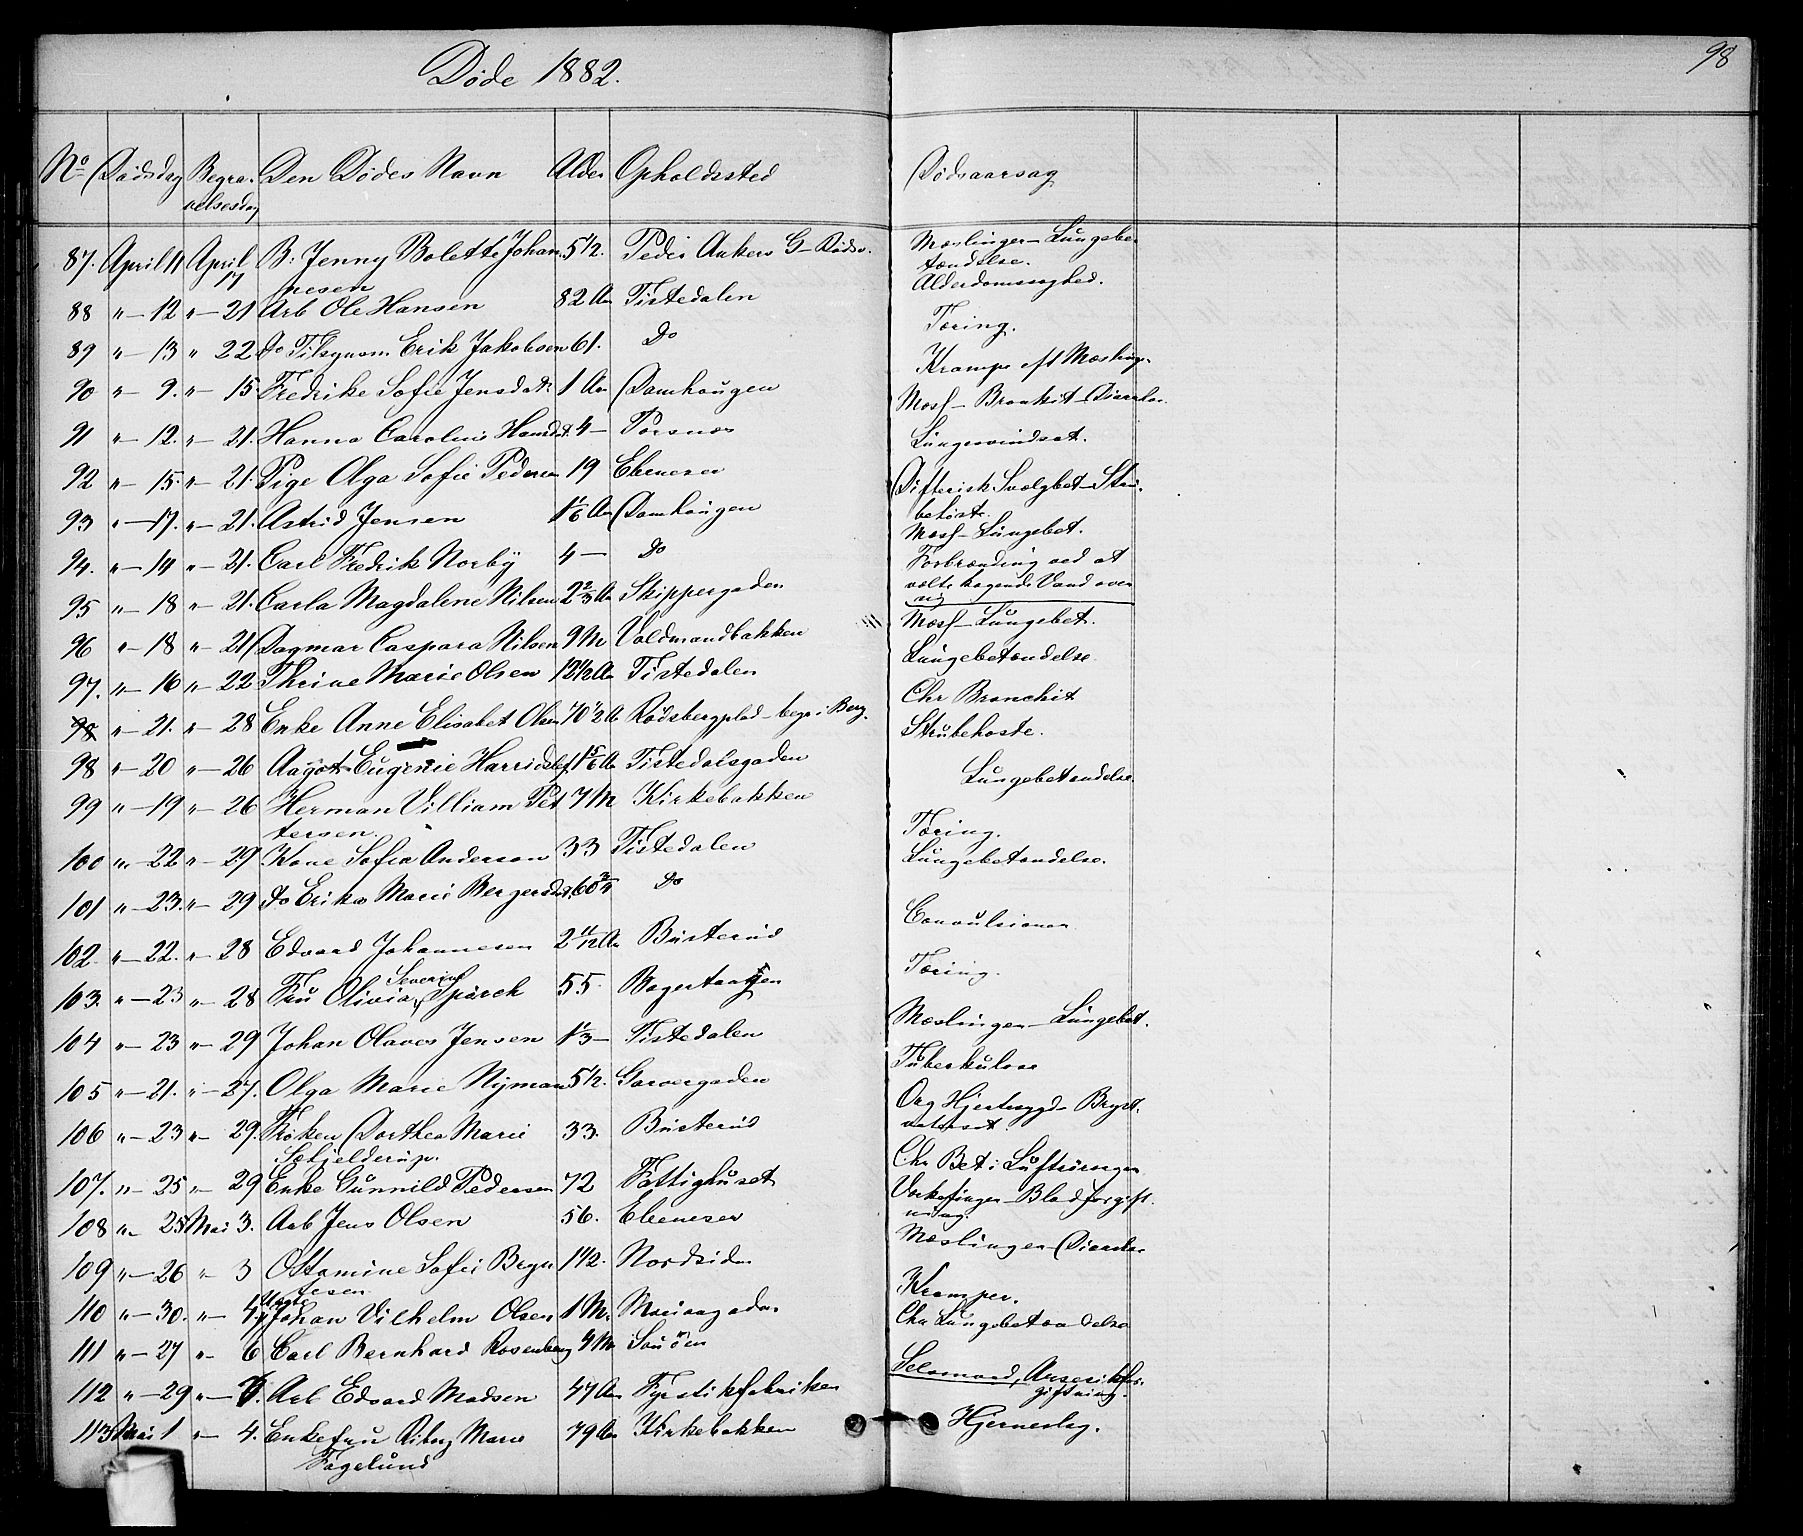 98
Døde 1882.
No Dødsdag Begra- Den Dødes Navn Alder Opholdssted Dødsaarsag
velsesdag
87. April 11 April 17 B: Jenny Bolette Johan 5 1/2. Peder Ankers G– Rødsv. Mæslinger – Lungebe-
nesen tændelse.
88 " – 12 " – 21 Arb Ole Hansen 82 Aar Tistedalen Alderdomssyghed.
89 " – 13 " 22. do Tilsynsm. Erik Jakobsen 61. do Tæring.
90 " – 9. " – 15. Fredrike Sofie Jensdat. 1 Aar Damhaugen Krampe eft Mæsling.
91 " – 12. " – 21. Hanna Caroline Hansd. 4 – Torsnæs Mæsl – Bronkit – Diarrhe.
92 " – 15. " – 21. Pige Olga Sofie Pedersen 19 Ebeneser Lungesvindsot.
93 " – 17. " – 21. Astrid Jensen 1 1/6 Aar Damhaugen Difterisk Svælgbet – Stru-
behoste.
94. " – 14 " – 21. Carl Fredrik Norby 4 – do Mæsl – Lungebet.
95 " – 18 " – 21. Carla Magdalene Nilsen 2 2/3 Aar Skippergaden Forbrænding ved at
vælte kogende Vand over
sig
96 " – 18 " – 21 Dagmar Caspara Nilsen 9 M Voldmandbakken Mæsl – Lungebet.
97. " – 16 " – 22 Thrine Marie Olsen 12 1/2 Aar Tistedalen Lungebetændelse.
98 " – 21. " – 28 Enke Anne Elisabet Olsen 70 1/2 A Rødsbergplads – begr. i Berg. Chr Bronchit
98 " – 20 " – 26 Aagot Eugenie Harridslef. 1 5/6 Aar Tistedalsgaden Strubehoste.
99 " – 19 " – 26 Herman Villiam Pet 7 M Kirkebakken Lungebetændelse.
tersen.
100 " – 22 " – 29 Kone Sofia Anderson 33 Tistedalen Tæring.
101 " – 23. " – 29 do Erika Marie Bergersdat. 60 3/4 do Lungebetændelse.
102. " – 22. " – 28 Edvard Johannesen 2 11/12 Aar Busterud Convulsioner
103. " – 23 " – 28 Fru Olivia Severine Spärck 55. Bagertangen Tæring.
104 " – 23 " – 29 Johan Olaves Jensen 1 1/3 – Tistedalen Mæslinger – Lungebet.
105 " – 21. " – 27. Olga Marie Nyman 5 1/2. Garvergaden Tuberkulose
106 " – 23 " – 29. Frøken Dorthea Marie 33. Busterud Org Hjertesygd – Bryst-
Schjelderup. vatersot.
107. " – 25 " – 29 Enke Gunnild Pedersen 72 Fattighuset Chr Bet i Luftrørsgren
108 " – 25 Mai 3. Arb Jens Olsen 56. Ebeneser Værkefinger – Blodforgift-
ning.
109 " – 26 " 3 Ottomine Sofie Bryn 1 1/2. Nordsiden Mæslinger – Diarrhe
tesen
110 " – 30. " – 4. Uægte Johan Vilhelm Olsen 1 M. Mariagaden Kramper.
111 " – 27 " – 6 Carl Bernhard Rosenberg 4 M Sauøen Chr Lungebetændelse
112 " – 29 " – 7. Arb Edvard Madsen 47 Aar Fyrstikfabriken Selvmord, Arsenikfor-
giftning.
113 Mai 1 " – 4. Enkefru Marie 79 Aar Kirkebakken Hjerneslag.
Fagelund